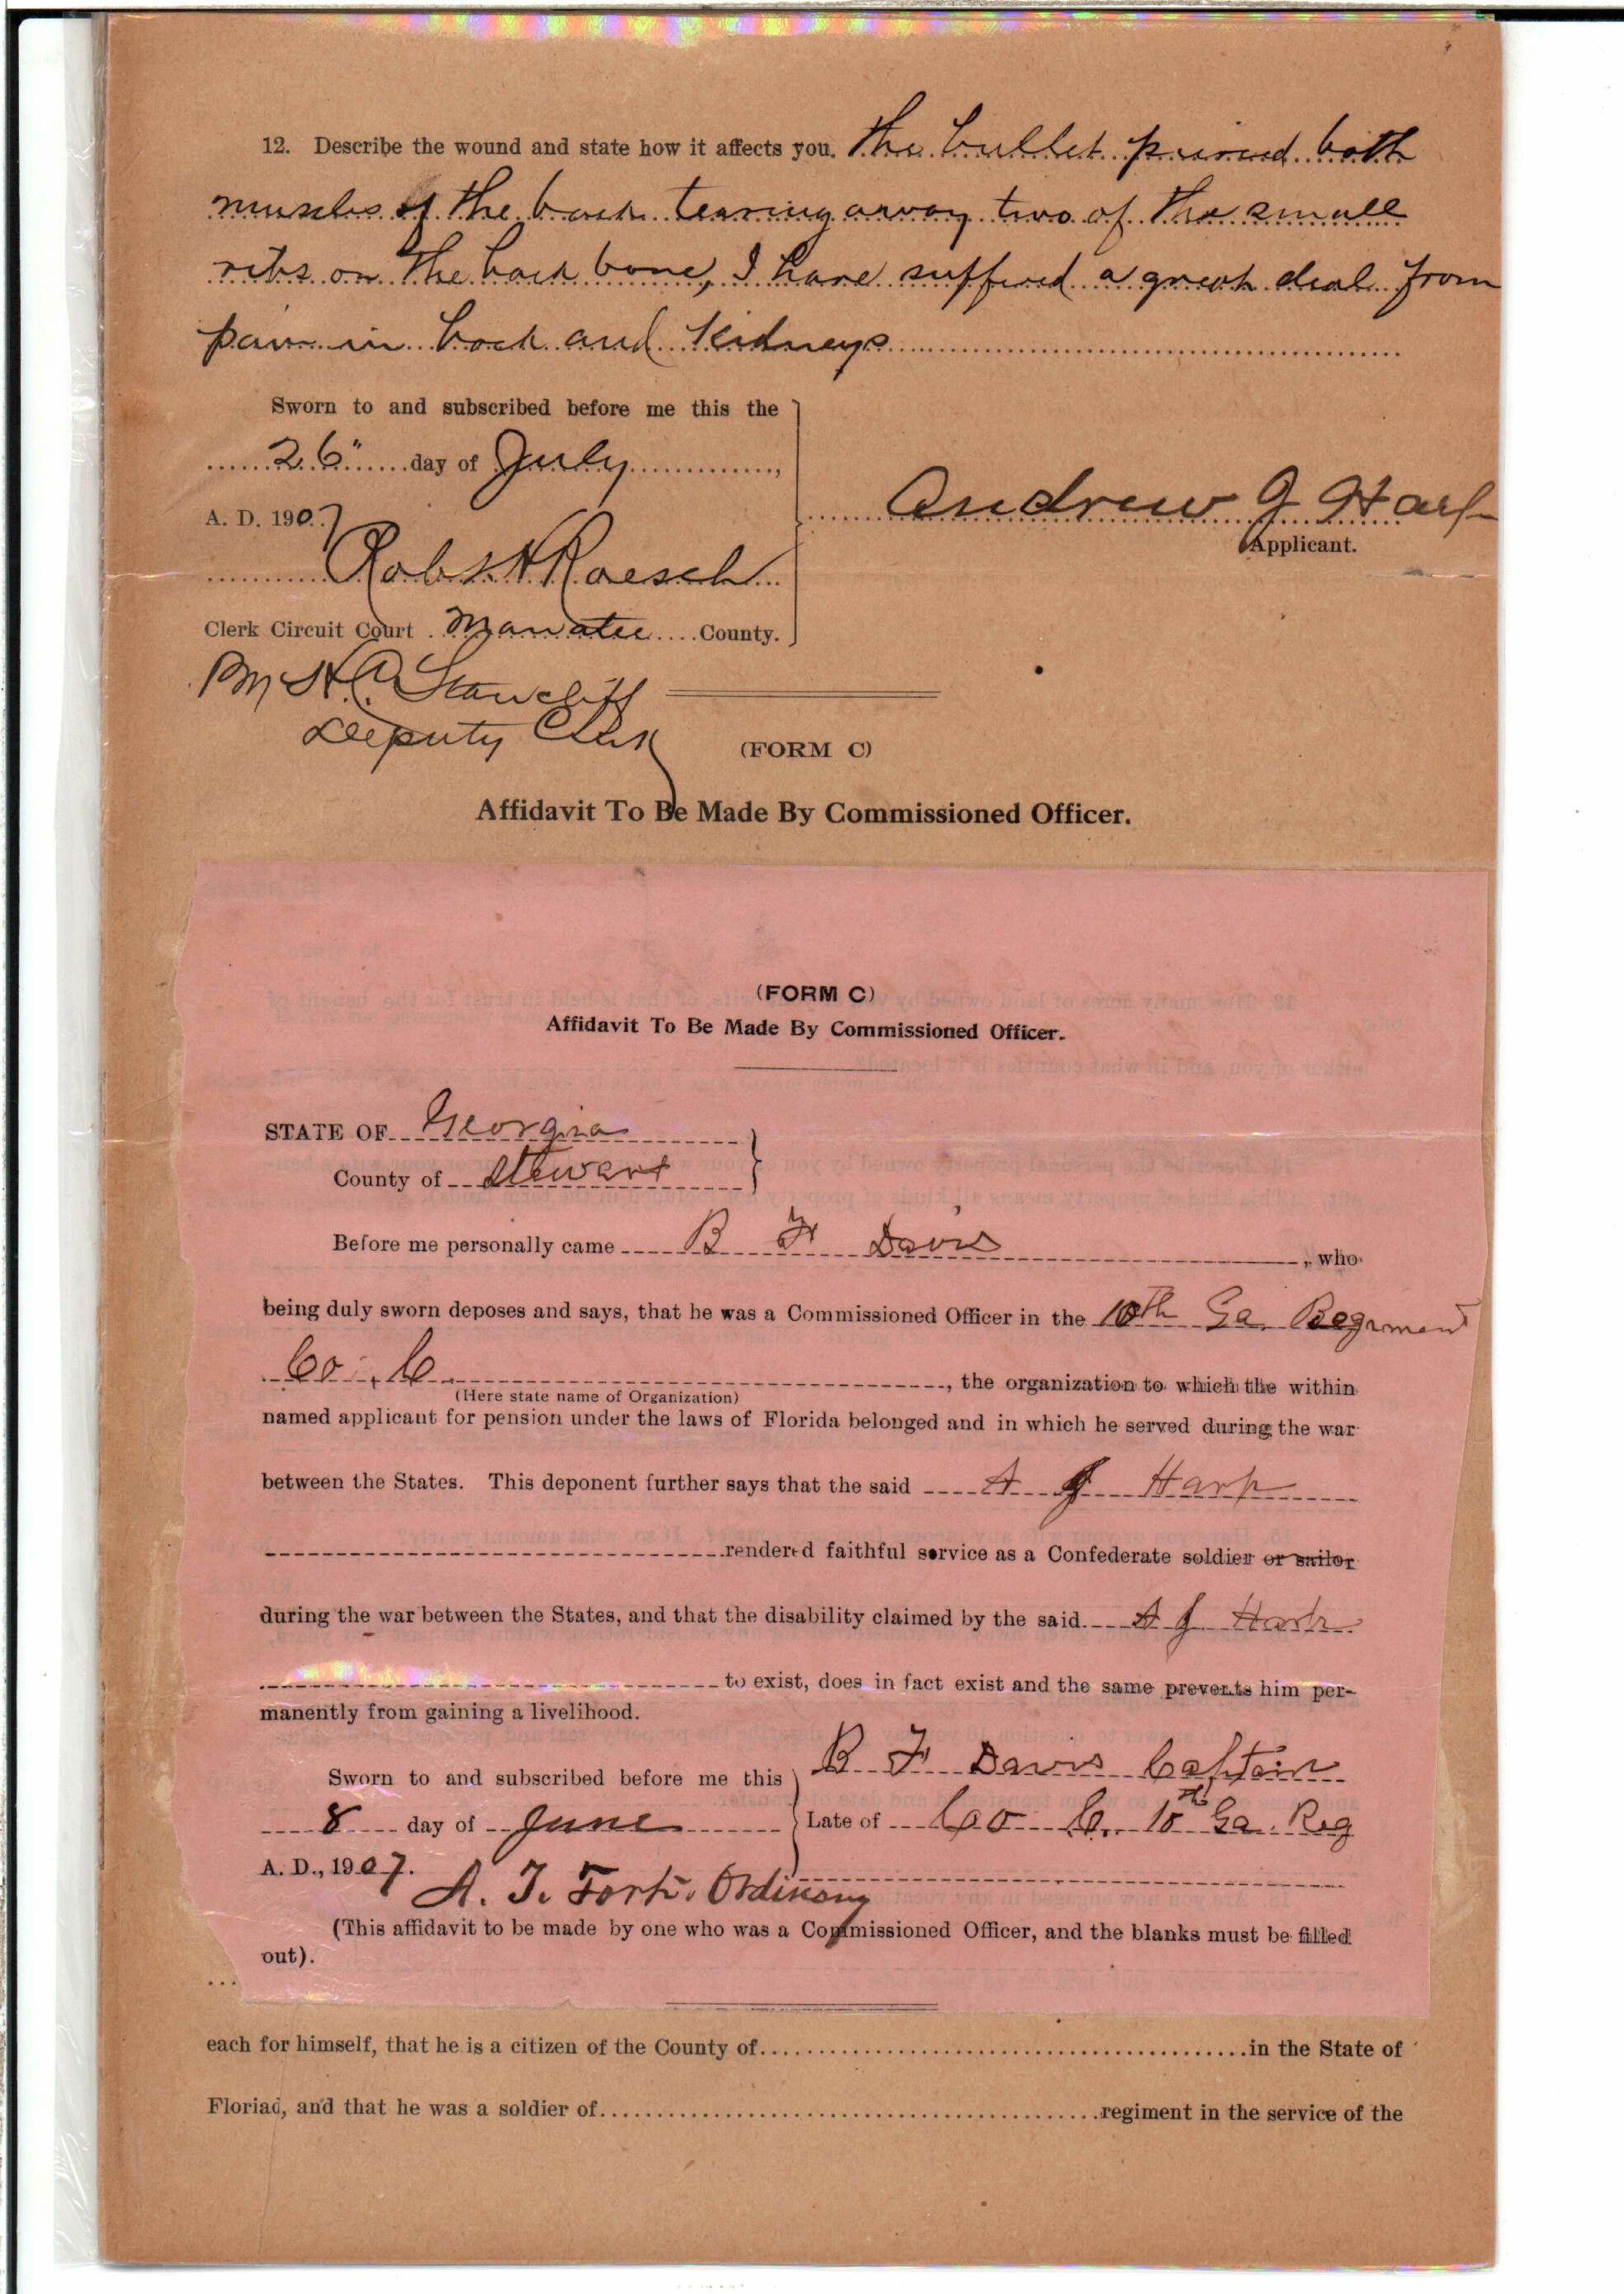 12. Describe the wound and state how it affects you. The bullet pierced both
muscles of the back tearing away two of the small
ribs on the back bone, I have suffered a great deal from
pain in back and kidneys
Sworn to and subscribed before me this the
26" day of July,
A. D. 1907
Andrew J Harp
Applicant.
Robt H Roesch
Clerk Circuit Court Manatee County.
By H.A. Stancliff
Deputy Clerk
(FORM C)
Affidavit To Be Made By Commissioned Officer.
(FORM C)
Affidavit To Be Made By Commissioned Officer.
STATE OF Georgia
County of Stewart
Before me personally came B F Davis, who
being duly sworn deposes and says, that he was a Commissioned Officer in the 10th Ga. Regiment
Co. C, the organization to which the within
(Here state name of Organization)
named applicant for pension under the laws of Florida belonged and in which he served during the war
between the States. This deponent further says that the said A J Harp
rendered faithful service as a Confederate soldier or sailor
during the war between the States, and that the disability claimed by the said A J Harp
to exist, does in fact exist and the same prevents him per-
manently from gaining a livelihood.
B F Davis Captain
Sworn to and subscribed before me this
8 day of June
Late of Co C. 10th Ga. Reg
A. D., 1907.
A. T. Fort, Ordinary
(This affidavit to be made by one who was a Commissioned Officer, and the blanks must be filled
out).
each for himself, that he is a citizen of the County of in the State of
Floriad, and that he was a soldier of regiment in the service of the